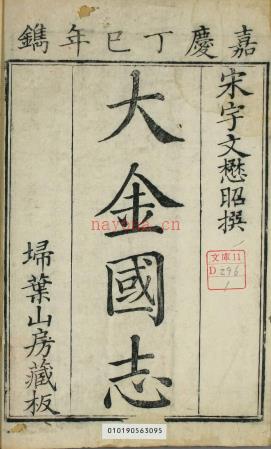 嘉慶丁巳年鐫
宋宇文懋昭撰
大金國志
埽葉山房藏板
文庫11
D296
1
nayona.cn
010190563095